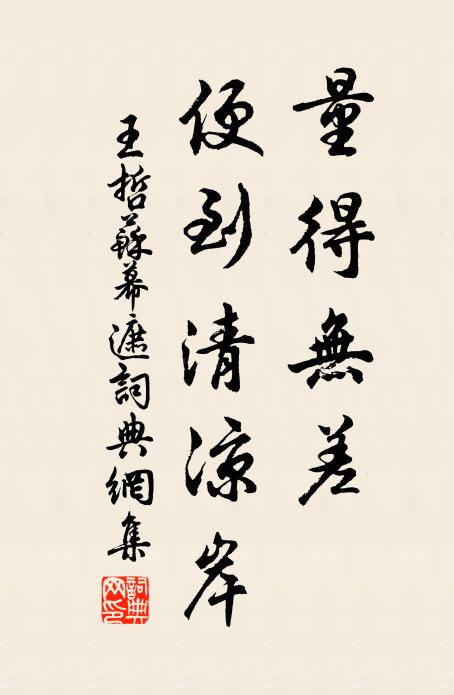 量得無差
便到清涼岸
王哲蘇幕遮詞典網集
詞典网印